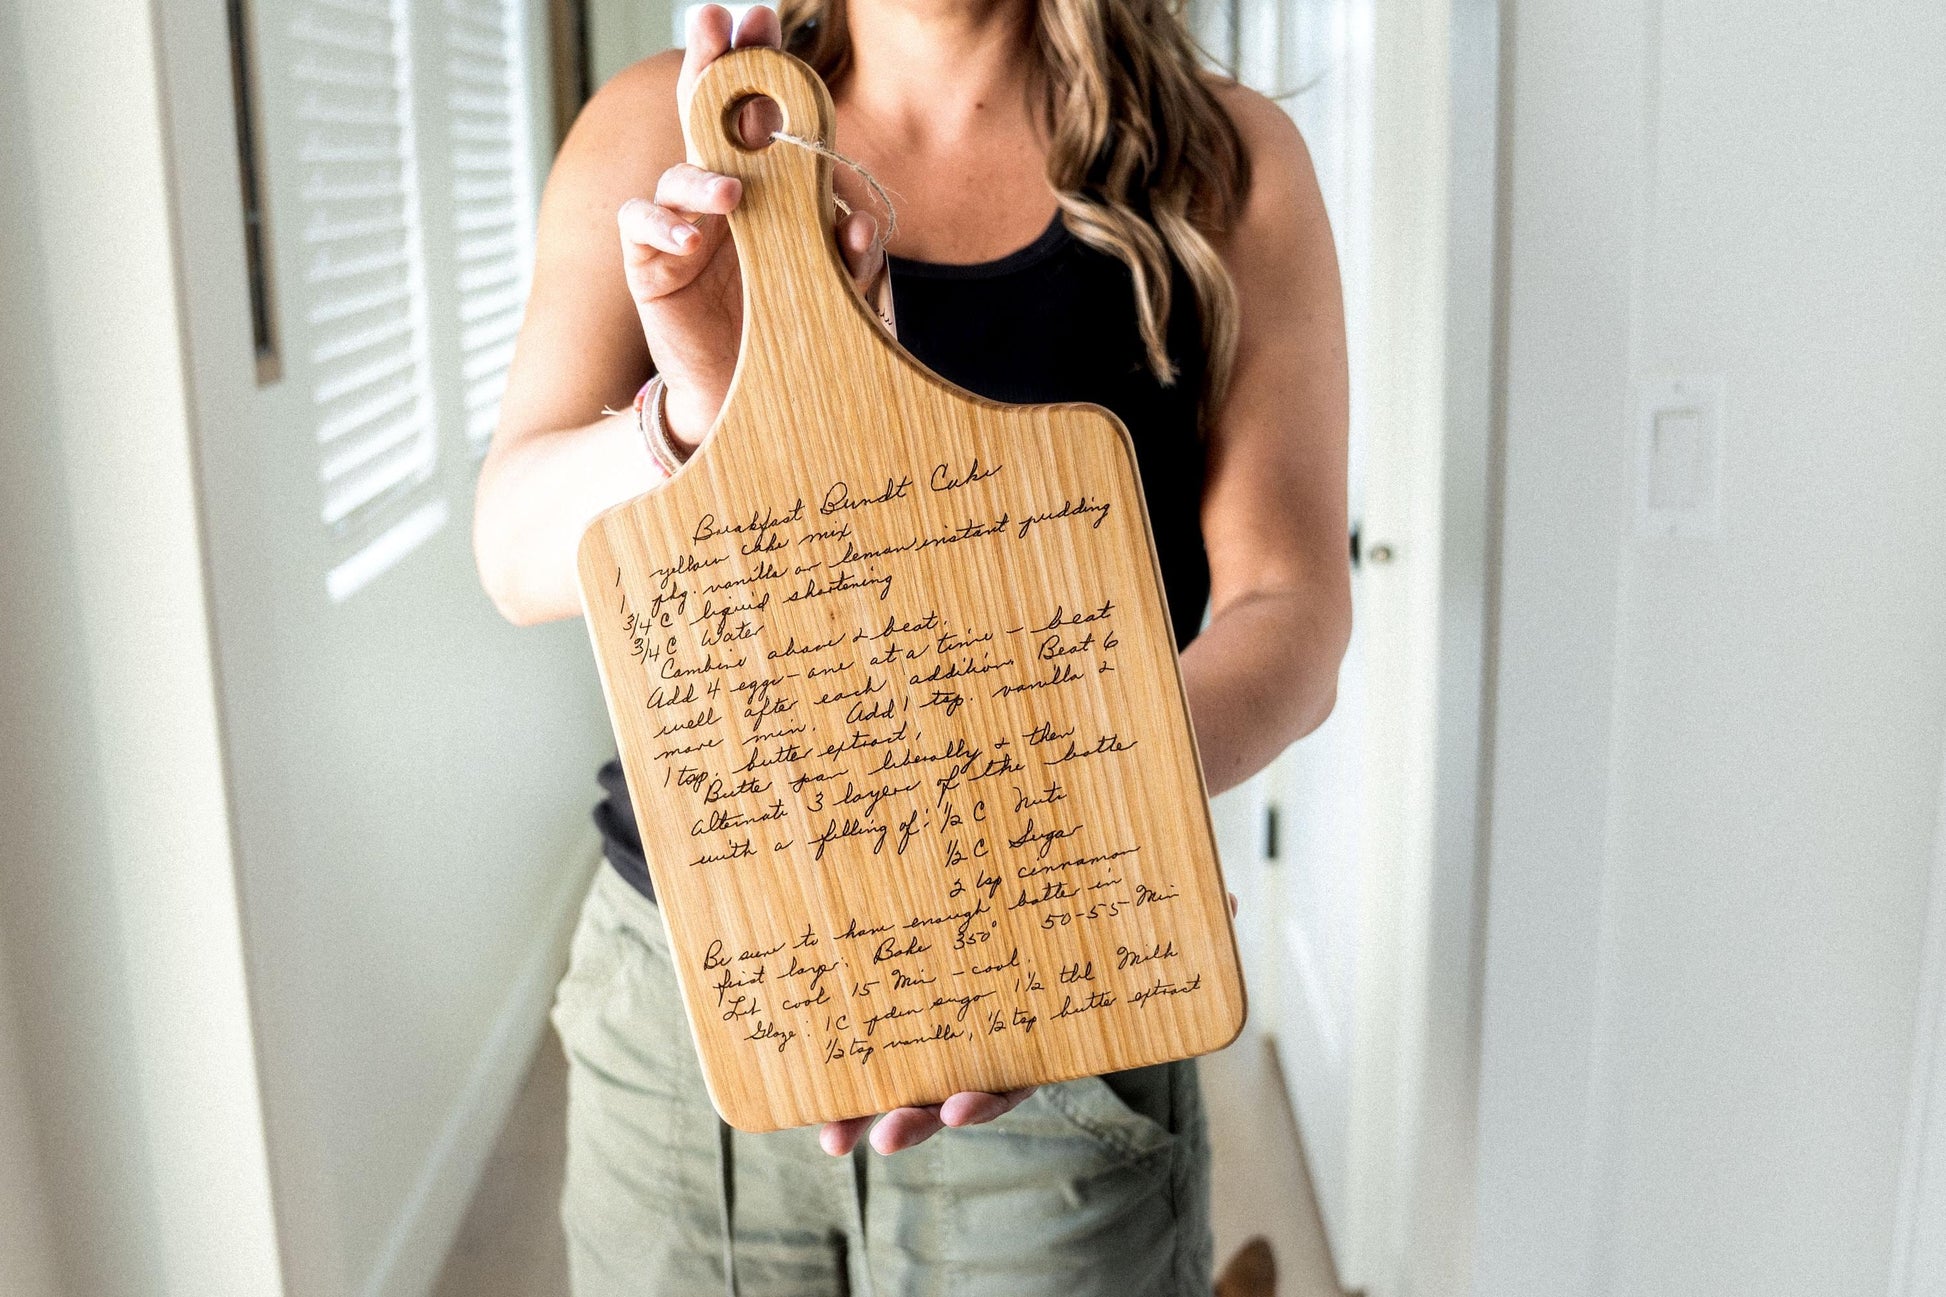 Breakfast Bundt Cake
1 yellow cake mix
1 pkg. vanilla or lemon instant pudding
3/4 C liquid shortening
3/4 C Water
Combine above & beat.
Add 4 eggs - one at a time - beat
well after each addition. Beat 6
more min. Add 1 tsp. vanilla &
1 tsp. butter extract.
Butter pan liberally & then
alternate 3 layers of the batter
with a filling of: 1/2 C Nuts
1/2 C Sugar
2 tsp cinnamon
Be sure to have enough batter in
first layer. Bake 350° 50-55 Min
Let cool 15 Min - cool.
Glaze: 1 C pdrn sugar 1 1/2 tbl Milk
1/2 tsp vanilla, 1/2 tsp butter extract